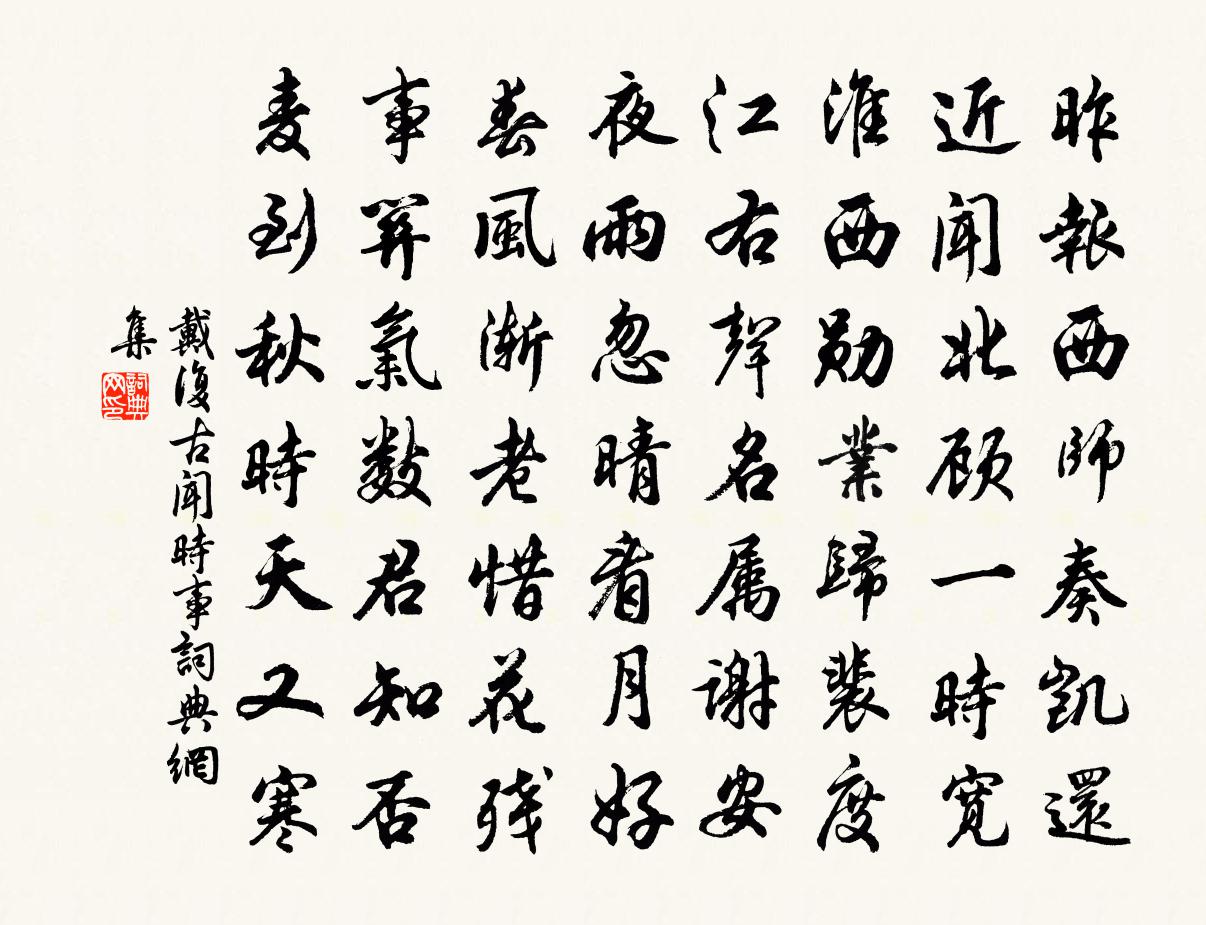 昨報西師奏凱還
近聞北顾一時寬
淮西勋業歸裴度
江右聲名属謝安
夜雨忽晴看月好
春風渐老惜花残
事关氣数君知否
麦到秋時天又寒
戴復古聞時事詞典網
集
詞典网印